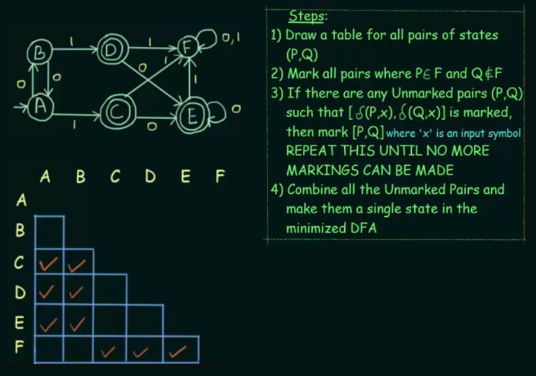 Steps:
1) Draw a table for all pairs of states
(P,Q)
2) Mark all pairs where P∈F and Q∉F
3) If there are any Unmarked pairs (P,Q)
such that [δ(P,x), δ(Q,x)] is marked,
then mark [P,Q] where 'x' is an input symbol
REPEAT THIS UNTIL NO MORE
MARKINGS CAN BE MADE
4) Combine all the Unmarked Pairs and
make them a single state in the
minimized DFA
B 1 D 1 F 0,1
0 0 0 1 1
A 1 C 0 E 0
A B C D E F
A
B
C ✓ ✓
D ✓ ✓
E ✓ ✓
F ✓ ✓ ✓